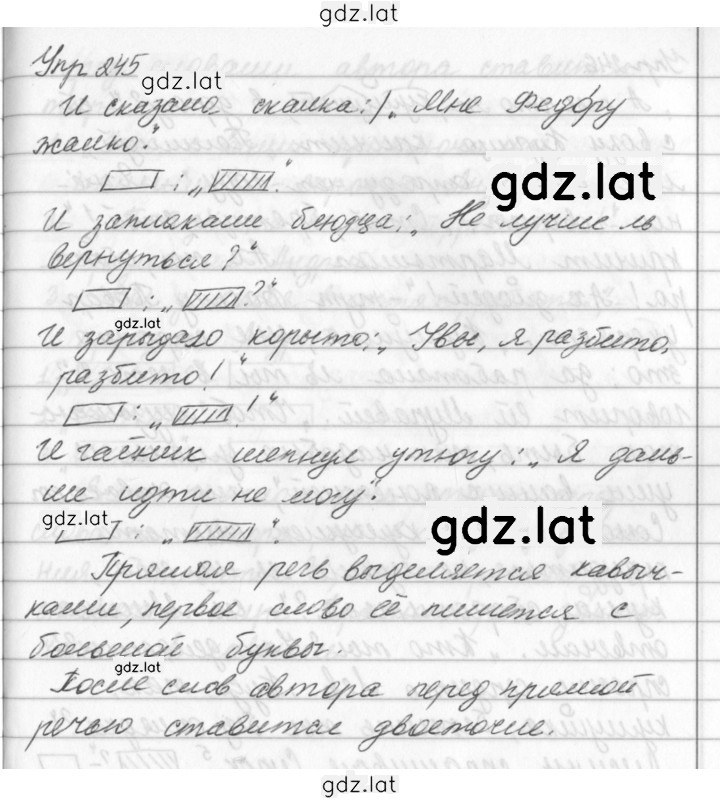 gdz.lat
Упр 245
gdz.lat
И сказала скалка: | „Мне Федору
жалко".
: „ ".
gdz.lat
И заплакали блюдца: „Не лучше ль
вернуться?"
: „ ?"
gdz.lat
И зарыдало корыто: „Увы, я разбито,
разбито!"
: „ !"
И чайник шепнул утюгу: „Я даль-
ше идти не могу".
gdz.lat
: „ ".
gdz.lat
Прямая речь выделяется кавыч-
ками, первое слово её пишется с
большой буквы.
gdz.lat
После слов автора перед прямой
речью ставится двоеточие.
gdz.lat